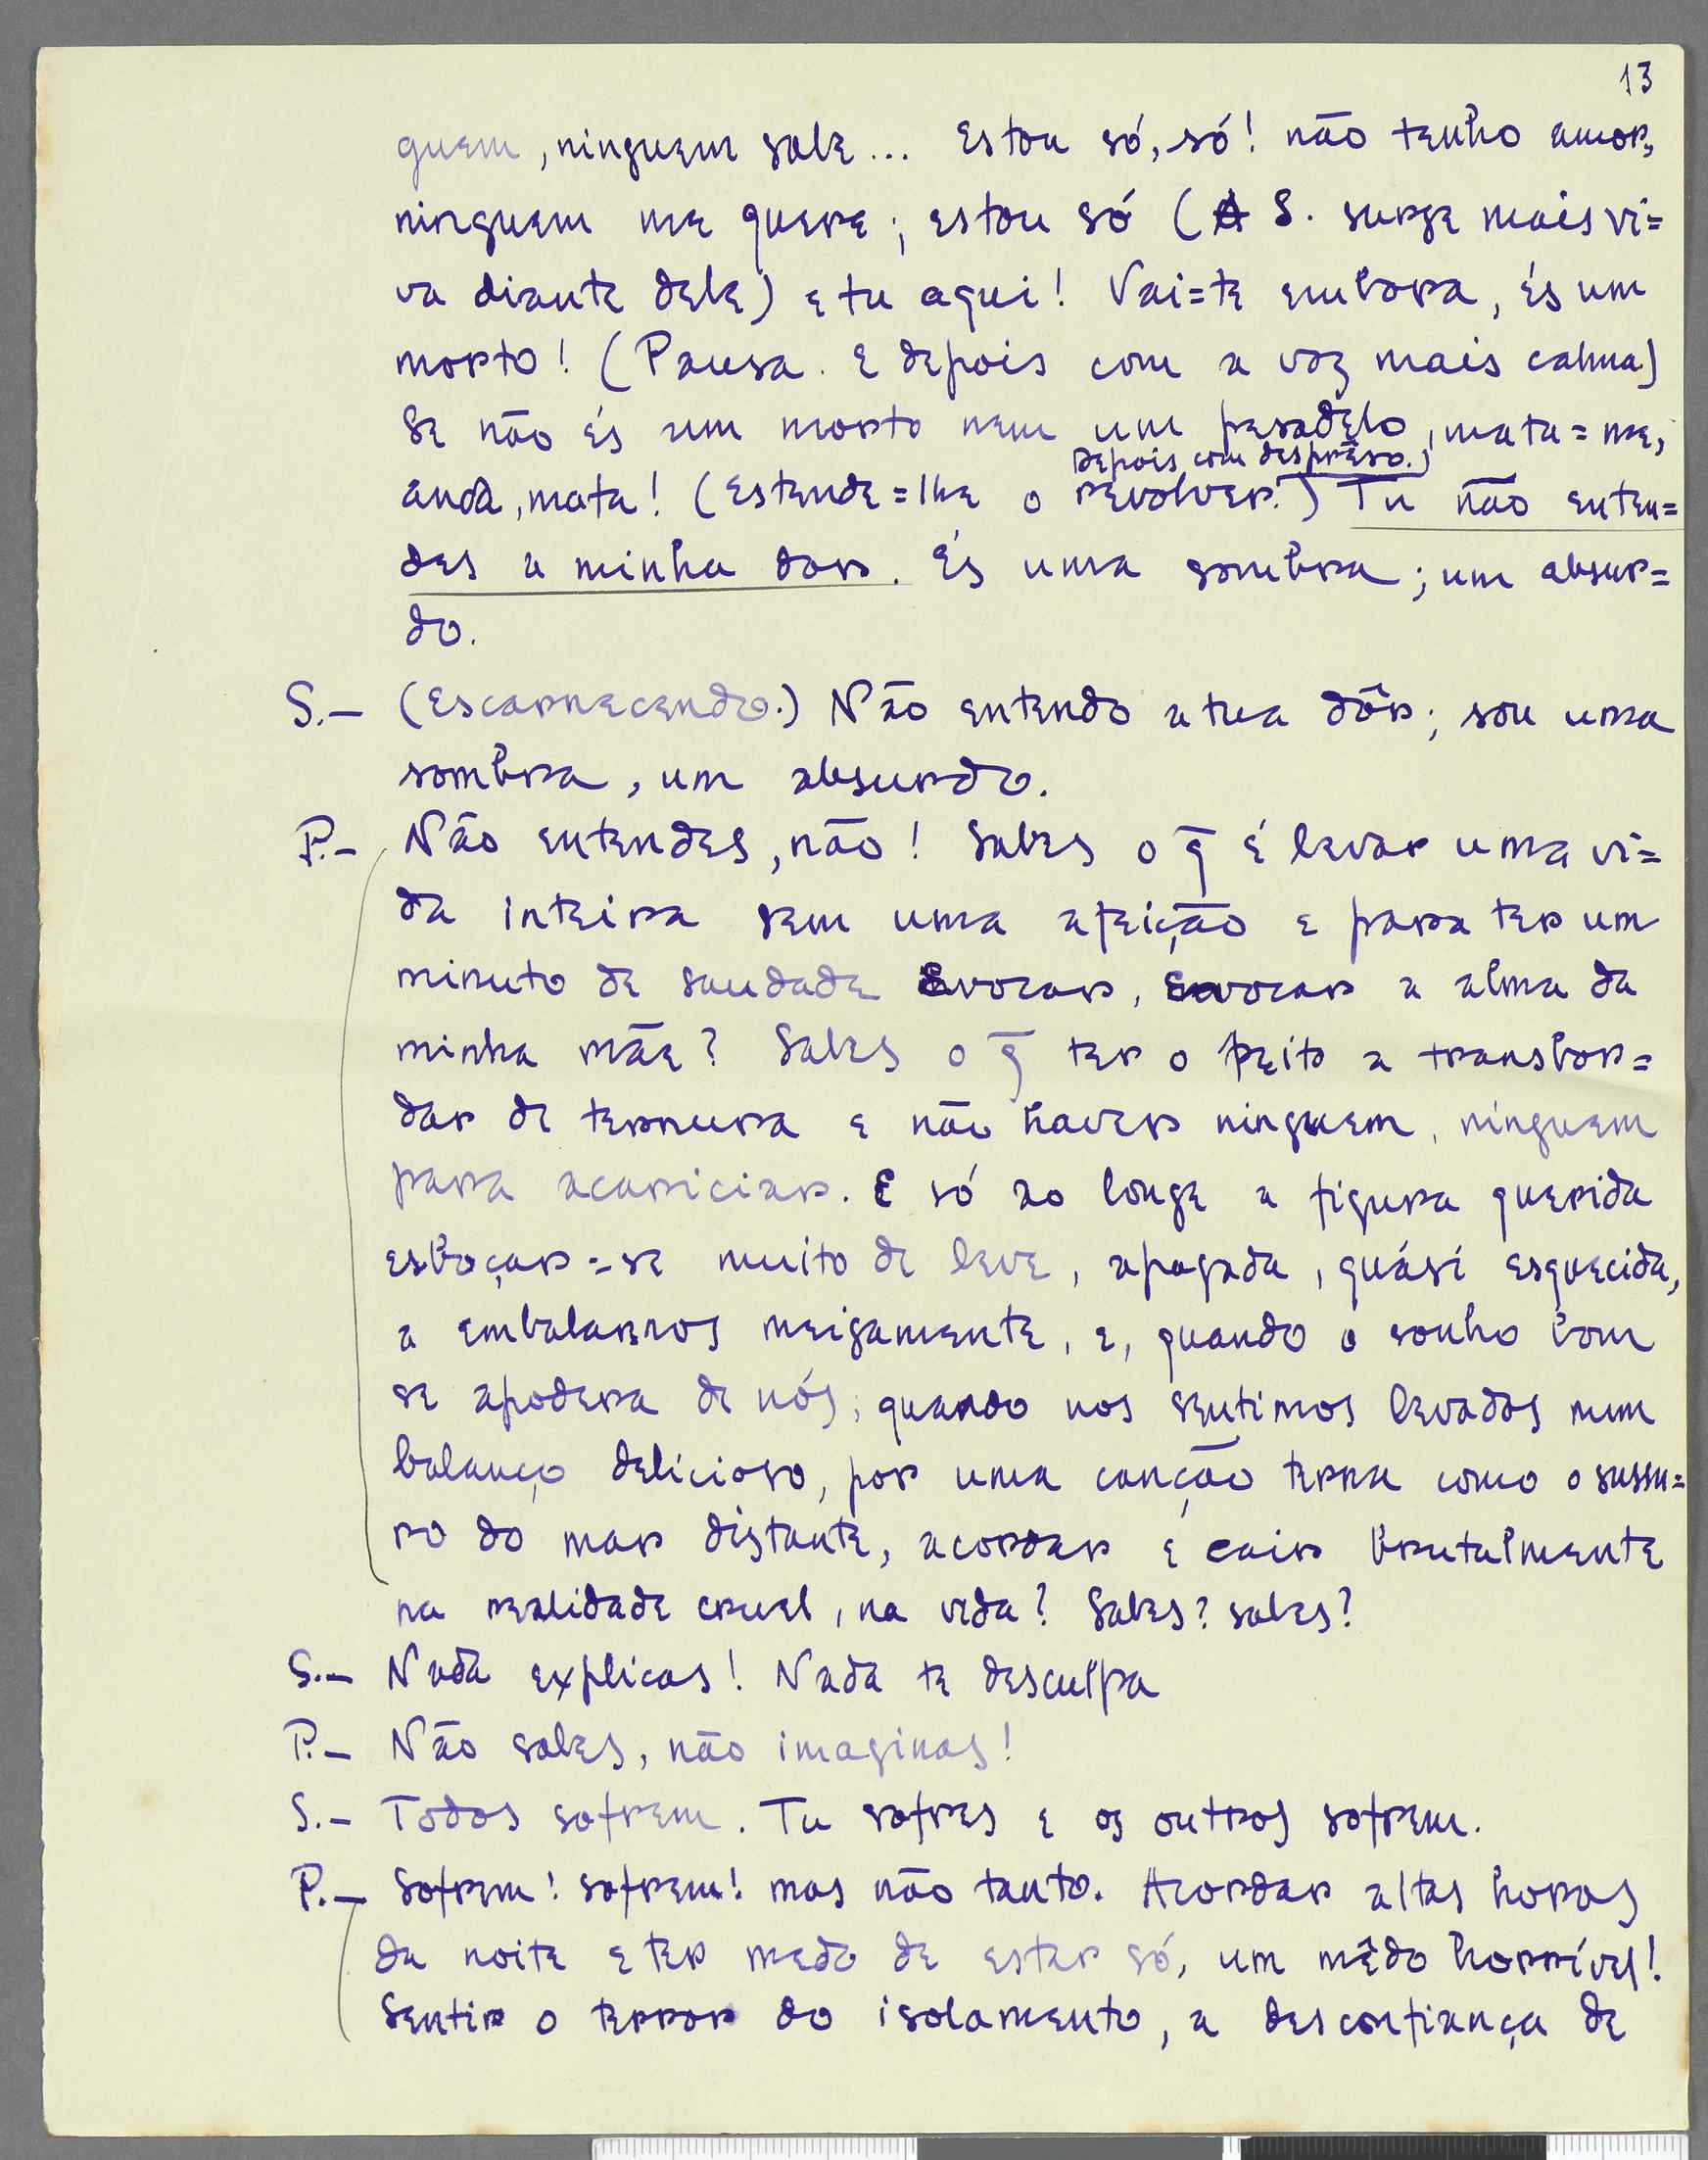 13
guem, ninguem sabe... Estou só, só! não tenho amor,
ninguem me quere; estou só (A S. surge mais vi=
va diante dele) e tu aqui! Vai=te embora, és um
morto! (Pausa. E depois com a voz mais calma)
Se não és um morto nem um pesadêlo, mata=me,
Depois, com desprêso.)
anda, mata! (Estende=lhe o revolver.) Tu não enten=
des a minha dor. És uma sombra; um absur=
do.
S.— (Escarnecendo.) Não entendo a tua dôr; sou uma
sombra, um absurdo.
P.- Não entendes, não! Sabes o q̃ é levar uma vi=
da inteira sem uma afeição e para ter um
minuto de saudade evocar, evocar a alma da
minha mãe? Sabes o q̃ ter o peito a transbor=
dar de ternura e não haver ninguem, ninguem
para acariciar. E só ao longe a figura querida
esboçar=se muito de leve, apagada, quási esquecida,
a embalarnos meigamente, e, quando o sonho bom
se apodera de nós; quando nos sentimos levados num
balanço delicioso, por uma canção terna como o sussu=
ro do mar distante, acordar e cair brutalmente
na realidade cruel, na vida? Sabes? sabes?
S.— Nada explicas! Nada te desculpa
P.— Não sabes, não imaginas!
S.— Todos sofrem. Tu sofres e os outros sofrem.
P.— Sofrem! sofrem! mas não tanto. Acordar altas horas
da noite e ter medo de estar só, um mêdo horrível!
Sentir o terror do isolamento, a desconfiança de